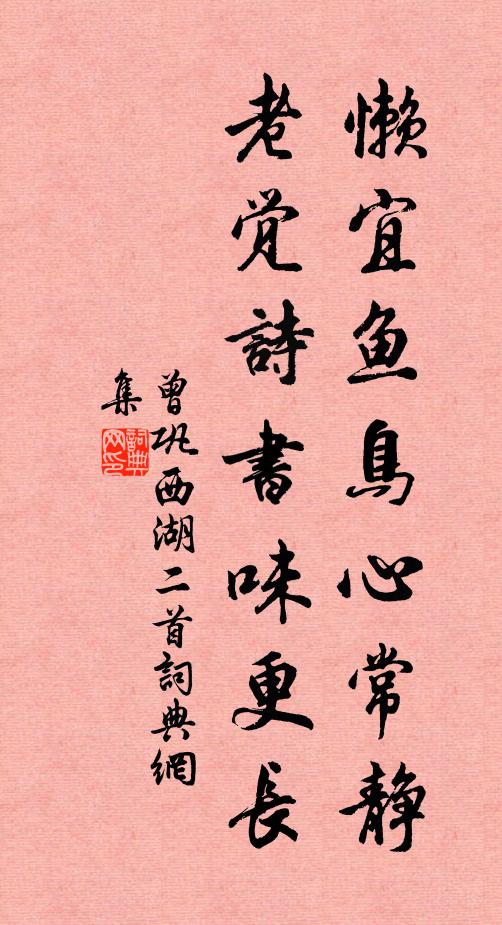 懶宜鱼鳥心常静
老覺詩書味更長
曾巩西湖二首詞典網
集
詞典网印